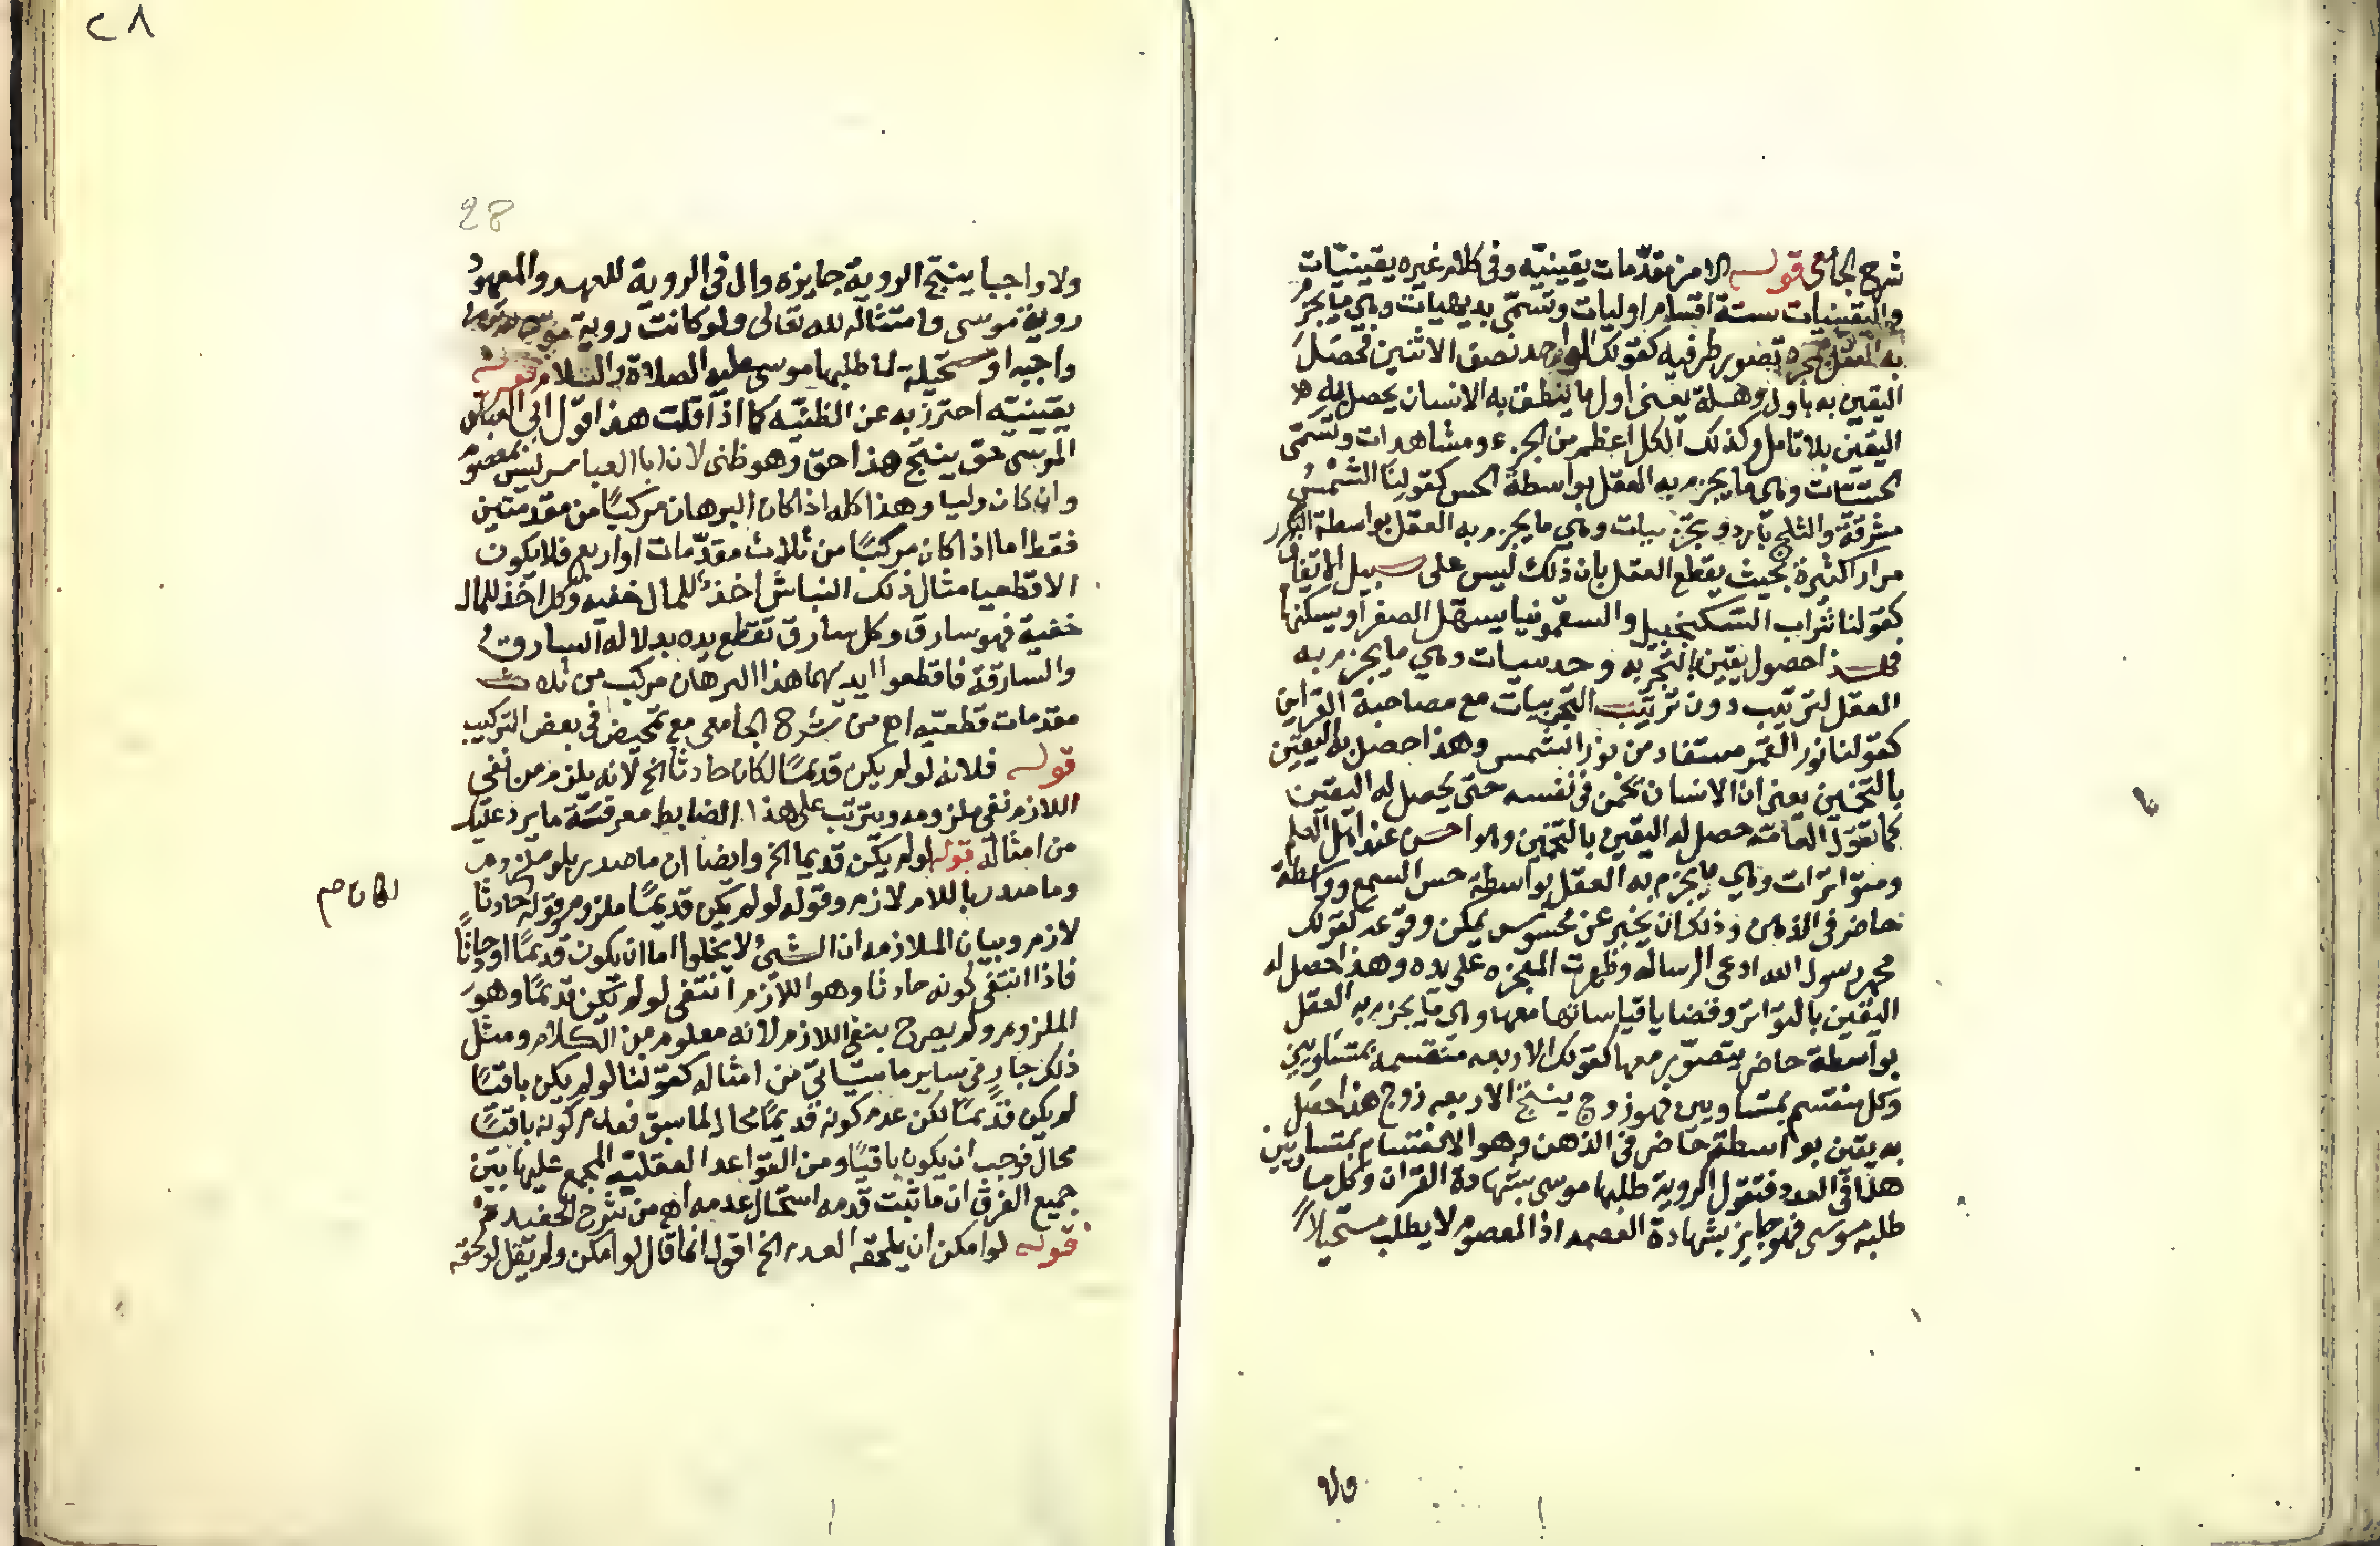 شرح الجامعى قوله الا من مقدّمات يقينيّه وفى كلام غيره يقينيّات
واليقينيات ستة اقسام اوليات وتسمّى بديهيات وهي ما يجزم
به العقل بمجرد تصور طرفيه كقولك الواحد نصف الاثنين فحصل
اليقين به باول وهلة يعنى اول ما ينطق به الانسان يحصل له
اليقين بلا تامل وكذلك الكل اعظم من الجزء ومشاهدات وتسمّى
الحسّيّات وهي ما يجزم به العقل بواسطة الحس كقولنا الشمس
مشرقة والثلج بارد وتجرّبيات وهي ما يجزم به العقل بواسطة التكرر
مرارا كثيرة بحيث يقطع العقل بان ذلك ليس على سبيل الاتفاق
كقولنا شراب السكنجبيل والسقمونيا يسهّل الصفرا ويسكنها
حصول يقين بالتجربه وحدسيات وهي ما يجزم به
العقل لترتيب دون ترتيب التجربيات مع مصاحبة القراين
كقولنا نور القمر مستفاد من نور الشمس وهذا حصل به اليقين
بالتخمين يعنى ان الانسان يخمن فى نفسه حتى يحصل له اليقين
كما تقول العامّه حصل له اليقين بالتخمين وهو احسن عند اهل العلم
ومتواترات وهي ما يجزم به العقل بواسطة حس السمع وواسطة
حاضر فى الذهن وذلك ان يخبر عن محسوس يمكن وقوعه كقولك
محمد رسول الله ادعى الرساله وظهرت المعجزه على يده وهذا حصل له
اليقين بالتواتر وقضايا قياساتها معها وهي ما يجزم به العقل
بواسطة حاضر يتصوّر معها كقولك الاربعه منقسمه بمتساويين
وكل منقسم بمتساويين فهو زوج ينتج الاربعه زوج هذا حصل
به يقين بواسطة حاضر فى الذهن وهو الانقسام بمتساويين
هذا فى العدد فتقول الروية طلبها موسى بشهادة القران وكل ما
طلبه موسى فهو جايز بشهادة العصمه اذ المعصوم لا يطلب مستحيلا
ولا
٢٨
28
ولا واجبا ينتج الروية جايزه وال فى الروية للعهد والمعهود
روية موسى وامتثاله لله تعالى ولو كانت روية
واجبه او مستحيلة لما طلبها موسى عليه الصلاة والسلام قوله
يقينيّه احترز به عن الظنيّه كما اذا قلت هذا قول ابى العباس
المرسى حق ينتج هذا حق وهو ظنى لان ابا العباس ليس بمعصوم
وان كان وليا وهذا كله اذا كان البرهان مركبًا من مقدمتين
فقط اما اذا كان مركبًا من ثلاث مقدّمات او اربع فلا يكون
الا قطعيا مثال ذلك النباش اخذ للمال خفيه وكل اخذ للمال
خفية فهو سارق وكل سارق تقطع يده بدلاله السارق
والسارقة فاقطعوا ايديهما هذا البرهان مركب من ثلاث
مقدمات قطعيّه اه من شرح الجامعى مع تمحيض فى بعض التركيب
قوله فلانه لو لم يكن قديمًا لكان حادثا الخ لانه يلزم من نفى
اللازم نفى ملزومه ويترتب على هذا الضابط معرفة ما يرد عليك
من امثاله قوله لو لم يكن قديما الخ وايضا ان ما صدر بلو ملزوم
وما صدر باللام لازم وقوله لو لم يكن قديمًا ملزوم وقوله حادثا
لكان صح
لازم وبيان الملازمه ان الشئ لا يخلوا اما ان يكون قديمًا او حادثًا
فاذا انتفى كونه حادثا وهو اللازم انتفى لو لم يكن قديمًا وهو
الملزوم ولم يصرح بنفى اللازم لانه معلوم من الكلام ومثل
ذلك جار فى ساير ما سياتى من امثاله كقولنا لو لم يكن باقيًا
لم يكن قديمًا لكن عدم كونه قديمًا محال لما سبق فعدم كونه باقيًا
محال فوجب ان يكون باقيًا ومن القواعد العقليّه المجمع عليها بين
جميع الفرق ان ما ثبت قدمه استحال عدمه اه من شرح الحفيد
قوله لو امكن ان يلحقه العدم الخ اقول انما قال لو امكن ولم يقل لو لحقه